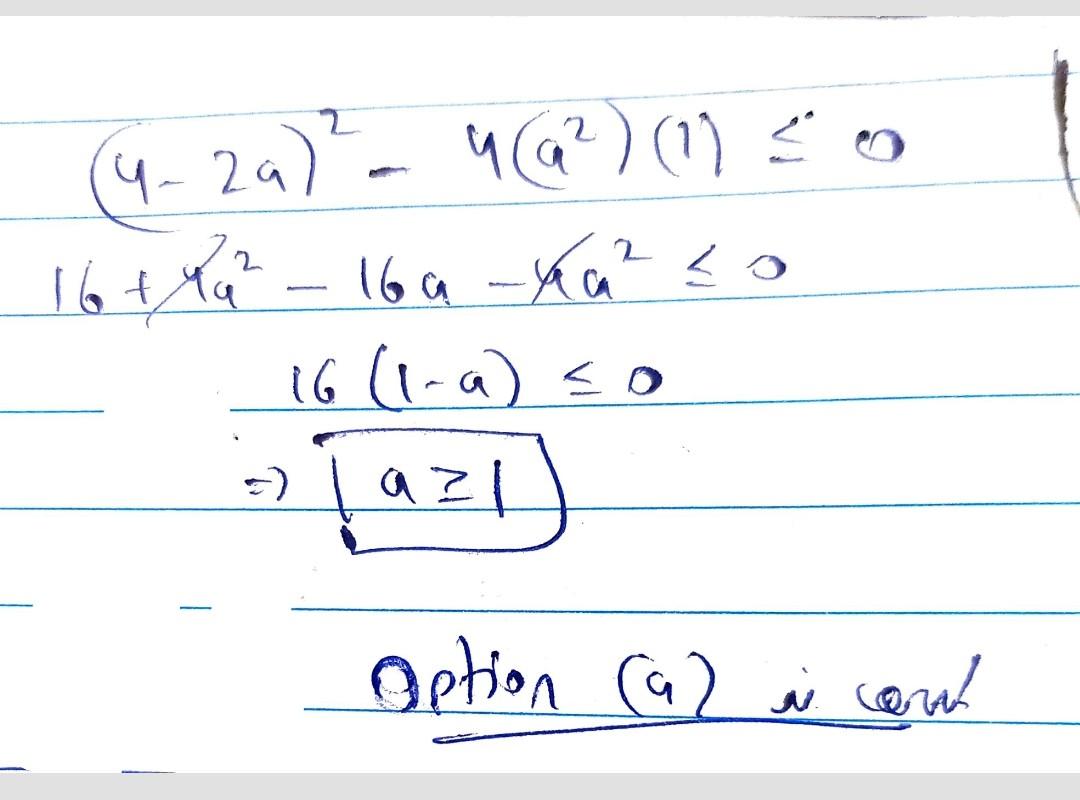 (4 - 2a)² - 4(a²)(1) ≤ 0
16 + 4a² - 16a - 4a² ≤ 0
16 (1 - a) ≤ 0
⇒ a ≥ 1
Option (a) is